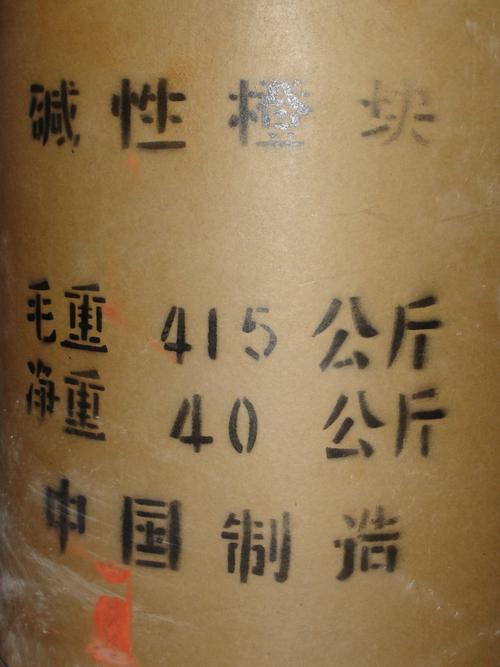 碱性橙块
毛重 415 公斤
净重 40 公斤
中国制造